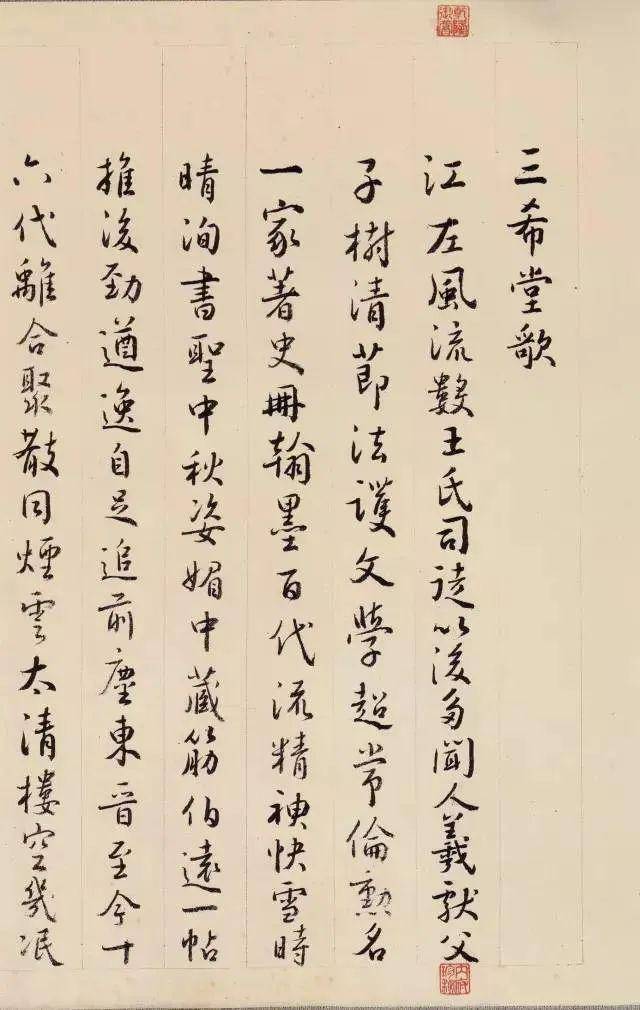 三希堂歌
江左風流數王氏司徒以後多聞人羲獻父
子樹清節法護文學超常倫勳名
一家著史冊翰墨百代流精神快雪時
晴洵書聖中秋姿媚中藏筋伯遠一帖
推後勁遒逸自足追前塵東晉至今十
六代離合聚散同煙雲太清樓空幾泯
乾隆御覽